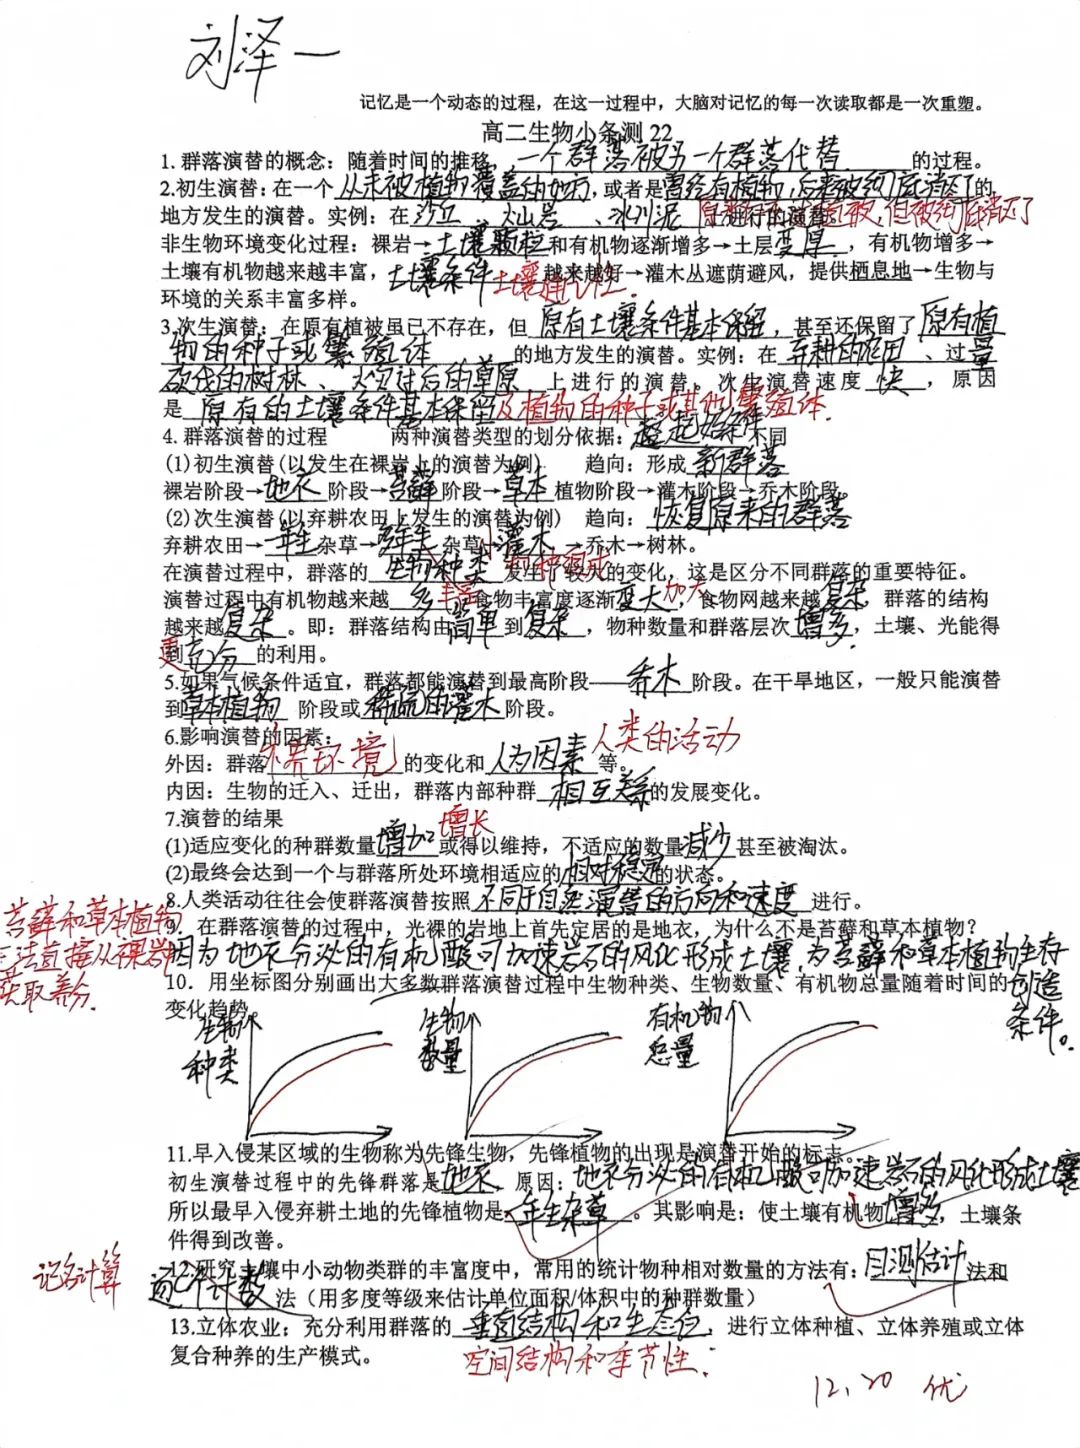 刘泽一
记忆是一个动态的过程，在这一过程中，大脑对记忆的每一次读取都是一次重塑。
高二生物小条测 22
1. 群落演替的概念：随着时间的推移，一个群落被另一个群落代替 的过程。
2.初生演替：在一个从未被植物覆盖的地方，或者是曾经有植物，后来被彻底消灭了的
地方发生的演替。实例：在沙丘、火山岩、冰川泥上进行的演替。
原来存在过植被，但被彻底消灭了
非生物环境变化过程：裸岩→土壤颗粒和有机物逐渐增多→土层变厚，有机物增多→
土壤有机物越来越丰富，土壤条件 土壤通气性 越来越好→灌木丛遮荫避风，提供栖息地→生物与
环境的关系丰富多样。
3.次生演替：在原有植被虽已不存在，但原有土壤条件基本保留，甚至还保留了原有植
物的种子或繁殖体 的地方发生的演替。实例：在弃耕的农田、过量
砍伐的树林、火灾过后的草原 上进行的演替。次生演替速度 快，原因
是 原有的土壤条件基本保留及植物的种子或其他繁殖体.
4. 群落演替的过程 两种演替类型的划分依据：起始条件不同
(1)初生演替(以发生在裸岩上的演替为例) 趋向：形成新群落
裸岩阶段→地衣阶段→苔藓阶段→草本植物阶段→灌木阶段→乔木阶段
(2)次生演替(以弃耕农田上发生的演替为例) 趋向：恢复原来的群落
弃耕农田→一年生杂草→多年生杂草→小灌木→乔木→树林。
在演替过程中，群落的 生物种类 物种组成 发生了较大的变化，这是区分不同群落的重要特征。
演替过程中有机物越来越 多 丰富 食物丰富度逐渐变大 加大，食物网越来越复杂，群落的结构
越来越复杂。即：群落结构由简单到复杂，物种数量和群落层次增多，土壤、光能得
到更充分的利用。
5.如果气候条件适宜，群落都能演替到最高阶段——乔木阶段。在干旱地区，一般只能演替
到草本植物 阶段或稀疏的灌木阶段。
6.影响演替的因素： 人类的活动
外因：群落外界环境的变化和人为因素等。
内因：生物的迁入、迁出，群落内部种群相互关系的发展变化。
7.演替的结果 增长
(1)适应变化的种群数量增加或得以维持，不适应的数量减少甚至被淘汰。
(2)最终会达到一个与群落所处环境相适应的相对稳定的状态。
8.人类活动往往会使群落演替按照 不同于自然演替的方向和速度 进行。
9、在群落演替的过程中，光裸的岩地上首先定居的是地衣，为什么不是苔藓和草本植物？
苔藓和草本植物
无法直接从裸岩
获取养分.
因为地衣分泌的有机酸可加速岩石的风化形成土壤,为苔藓和草本植物生存
创造
条件。
10．用坐标图分别画出大多数群落演替过程中生物种类、生物数量、有机物总量随着时间的
变化趋势。
生物
种类
生物
数量
有机物
总量
11.早入侵某区域的生物称为先锋生物，先锋植物的出现是演替开始的标志。
初生演替过程中的先锋群落是地衣，原因：地衣分泌的有机酸可加速岩石的风化形成土壤
所以最早入侵弃耕土地的先锋植物是 一年生杂草。其影响是：使土壤有机物增多，土壤条
件得到改善。
12.研究土壤中小动物类群的丰富度中，常用的统计物种相对数量的方法有：目测估计法和
记名计算
逐个计数法（用多度等级来估计单位面积/体积中的种群数量）
13.立体农业：充分利用群落的 垂直结构和生态位，进行立体种植、立体养殖或立体
复合种养的生产模式。
空间结构和季节性.
12.20 优